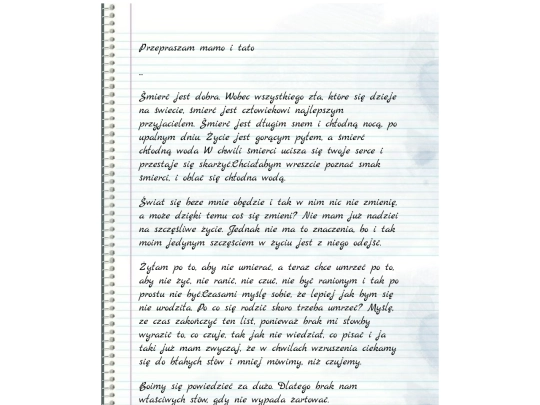 Przepraszam mamo i tato
...
Śmierć jest dobra. Wobec wszystkiego zła, które się dzieje
na świecie, śmierć jest człowiekowi najlepszym
przyjacielem. Śmierć jest długim snem i chłodną nocą, po
upalnym dniu. Życie jest gorącym pyłem, a śmierć
chłodną wodą. W chwili śmierci ucisza się twoje serce i
przestaje się skarżyć.Chciałabym wreszcie poznać smak
śmierci, i oblać się chłodną wodą.
Świat się beze mnie obędzie i tak w nim nic nie zmienię,
a może dzięki temu coś się zmieni? Nie mam już nadziei
na szczęśliwe życie. Jednak nie ma to znaczenia, bo i tak
moim jedynym szczęściem w życiu jest z niego odejść.
Żyłam po to, aby nie umierać, a teraz chce umrzeć po to,
aby nie żyć, nie ranić, nie czuć, nie być ranionym i tak po
prostu nie być.Czasami myślę sobie, że lepiej jak bym się
nie urodziła. Po co się rodzić skoro trzeba umrzeć? Myślę,
ze czas zakończyć ten list, ponieważ brak mi słowby
wyrazić to, co czuje, tak jak nie wiedział, co pisać i ja
taki już mam zwyczaj, że w chwilach wzruszenia ciekamy
się do błahych słów i mniej mówimy, niż czujemy.
Boimy się powiedzieć za dużo. Dlatego brak nam
właściwych słów, gdy nie wypada żartować.